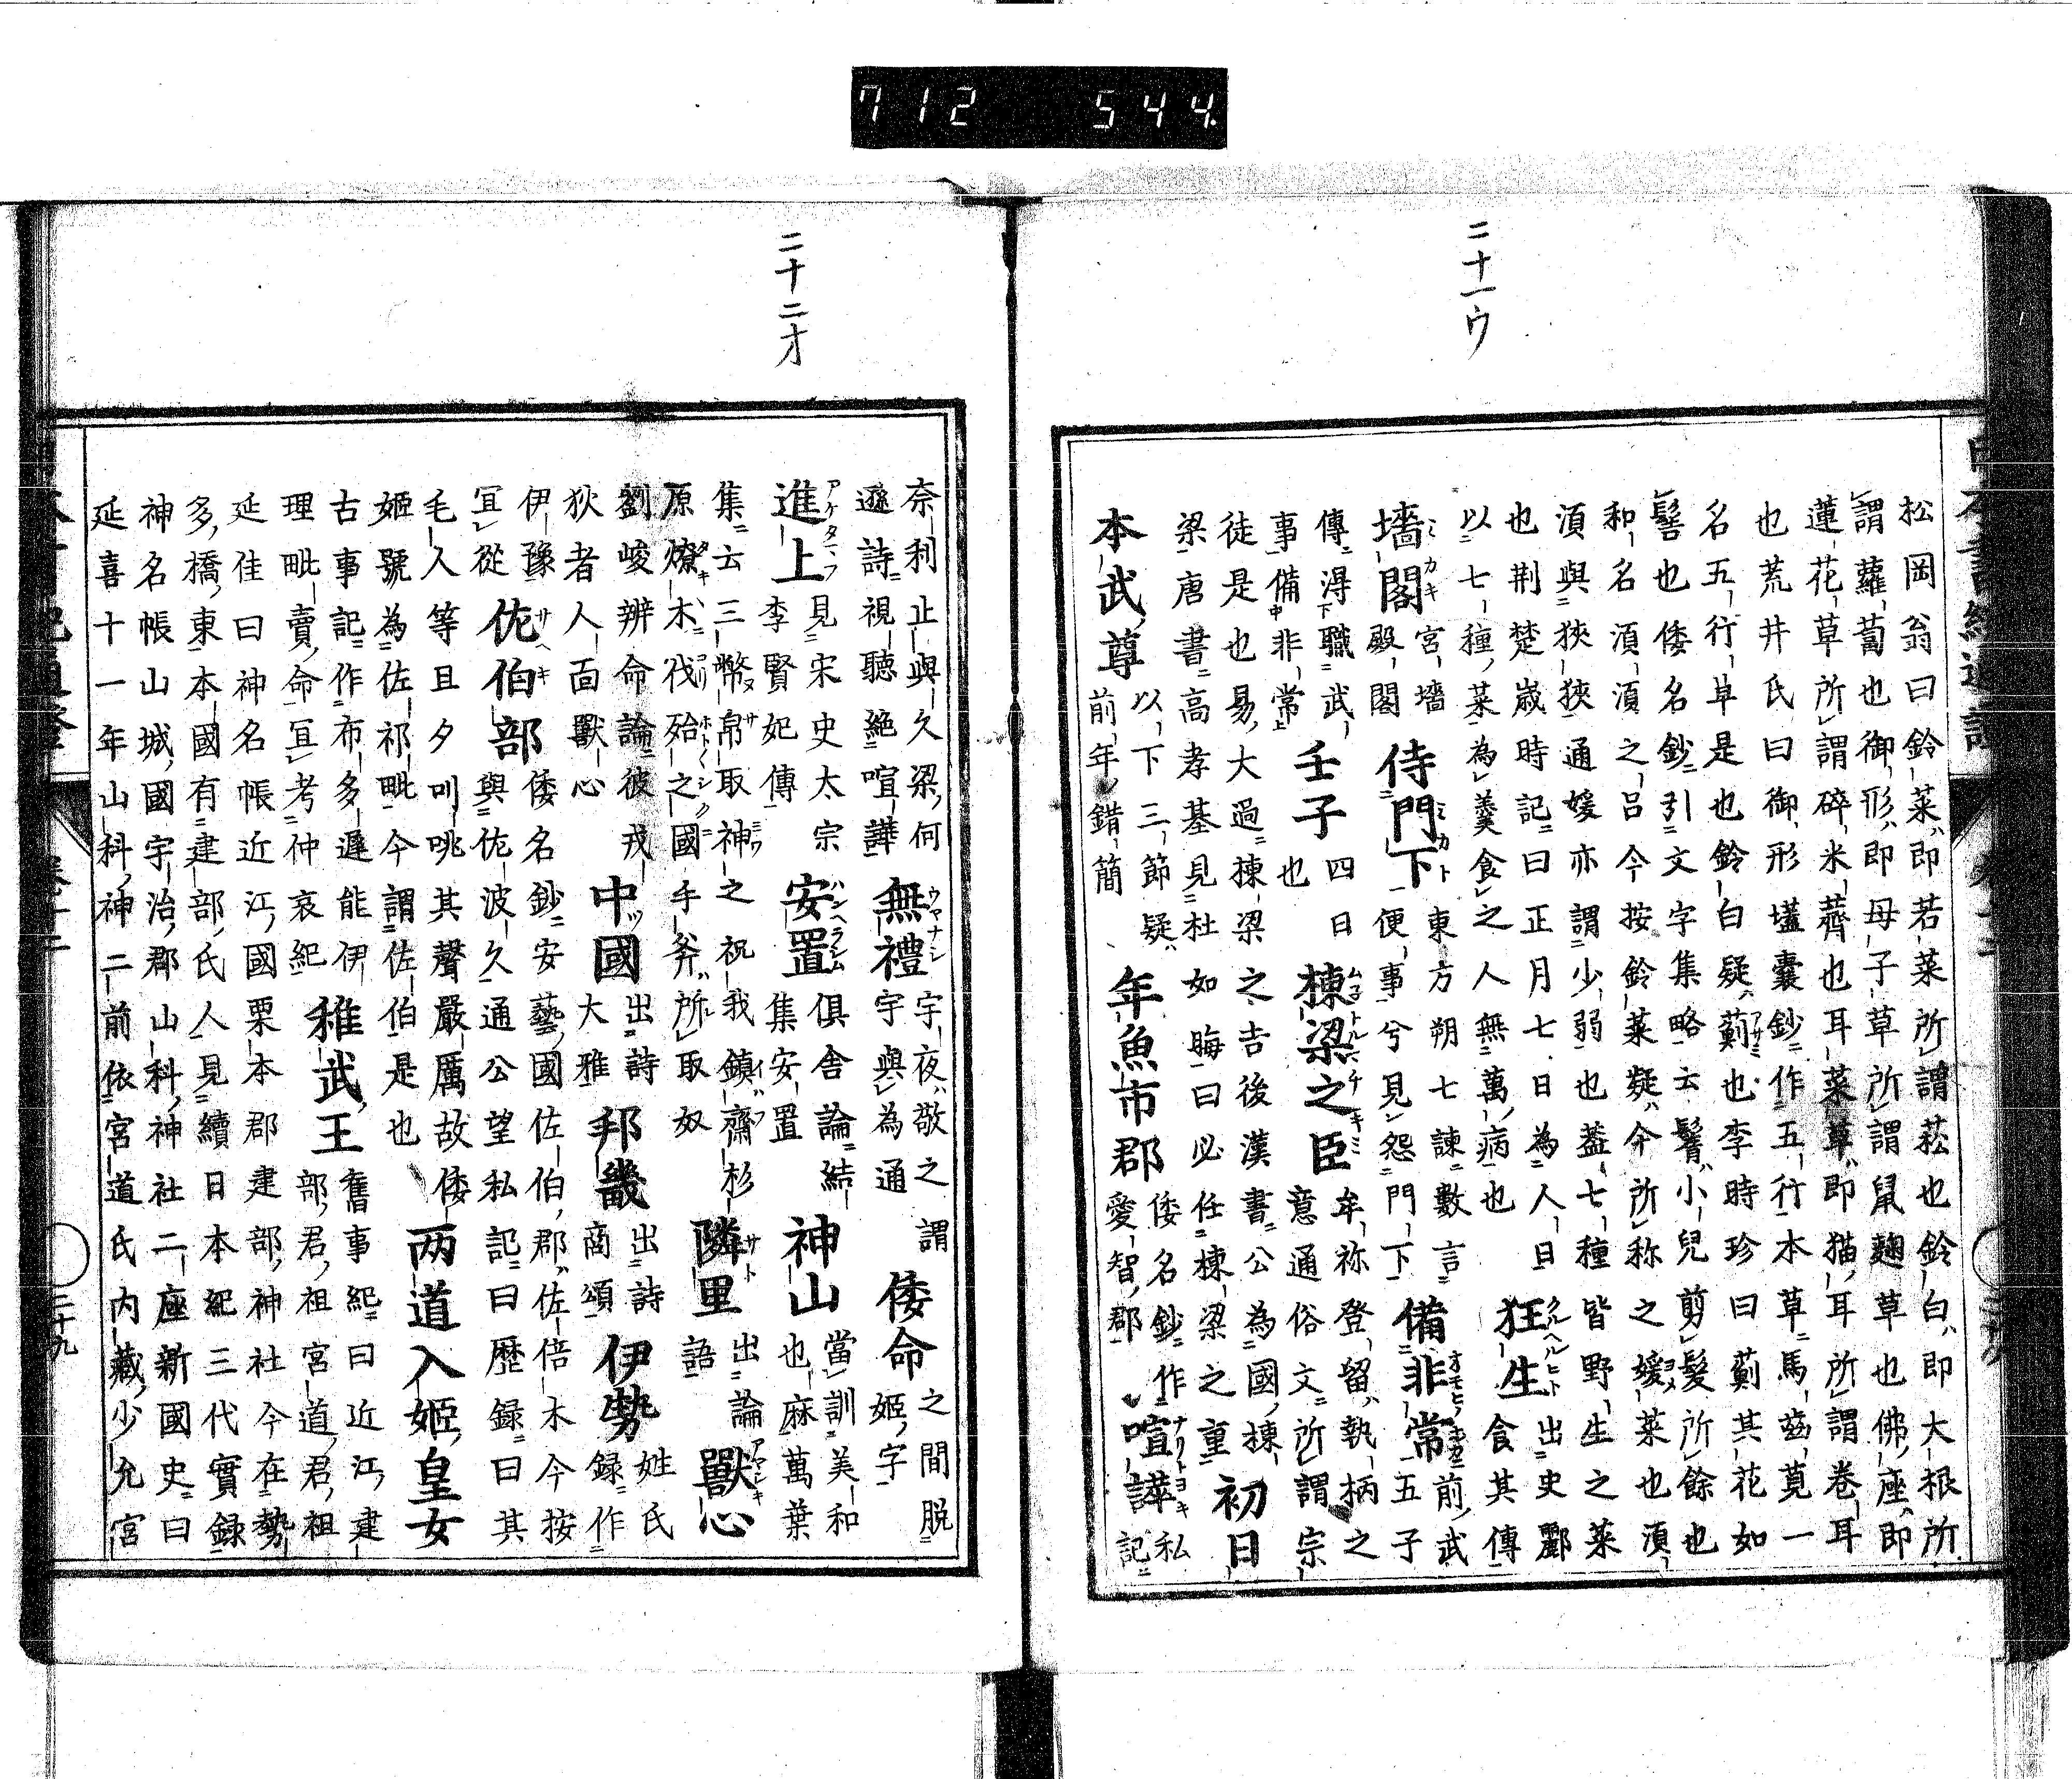 712 544
二十一ウ
松岡翁曰鈴菜即若菜所謂菘也鈴白即大根所
謂蘿蔔也御形即母子草所謂鼠麹草也佛座即
蓮花草所謂碎米薺也耳菜草即猫耳所謂卷耳
也荒井氏曰御形壒囊鈔作五行本草馬齒莧一
名五行草是也鈴白疑薊也李時珍曰薊其花如
髻也倭名鈔引文字集略云鬠小兒剪髮所餘也
和名湏湏之呂今按鈴菜疑今所称之媛菜也湏
湏與狹狹通媛亦謂少弱也蓋七種皆野生之菜
也荆楚歳時記曰正月七日為人日
以七種菜為羹食之人無萬病也
狂生
クルヘルヒト
出史酈
食其傳
墻閣
ミカキ
宮墻
殿閣
侍門下
ミカト
東方朔七諫數言
便事兮見怨門下
備非常
前武
五子
傳得職武
事備非常
壬子
四日
也
棟梁之臣
牟祢登留執柄之
意通俗文所謂宗
徒是也易大過棟梁之吉後漢書公為國棟
梁唐書高孝基見杜如晦曰必任棟梁之重
初日
本武尊
以下三節疑
前年錯簡
年魚市郡
倭名鈔作
愛智郡
喧譁
ナリトヨキ
私
記
二十二オ
奈利止與久梁何
遜詩視聽絶喧譁
無禮
ウヤナシ
宇夜敬之謂
宇與為通
倭命
之間脱
姬字
進上
アケタマフ
見宋史太宗
李賢妃傳
安置
ハンヘラシム
俱舍論結
集安置
神山
當訓美和
也麻萬葉
集云三幣帛取神之祝我鎮齋杉
原燎木伐殆之國手斧所取奴
隣里
サト
出論
語
獸心
アヤシキ
劉峻辨命論彼戎
狄者人面獸心
中國
出詩
大雅
邦畿
出詩
商頌
伊勢
姓氏
録作
伊豫
宜從
佐伯部
サヘキ
倭名鈔安藝國佐伯郡佐倍木今按
與佐波久通公望私記曰歴録曰其
毛人等且夕叫咷其聲嚴厲故倭
姬號為佐祁毗今謂佐伯是也
两道入姬皇女
古事記作布多遲能伊
理毗賣命宜考仲哀紀
稚武王
舊事紀曰近江建
部君祖宮道君祖
延佳曰神名帳近江國栗本郡建部神社今在勢
多橋東本國有建部氏人見續日本紀三代實録
神名帳山城國宇治郡山科神社二座新國史曰
延喜十一年山科神二前依宮道氏内藏少允宮